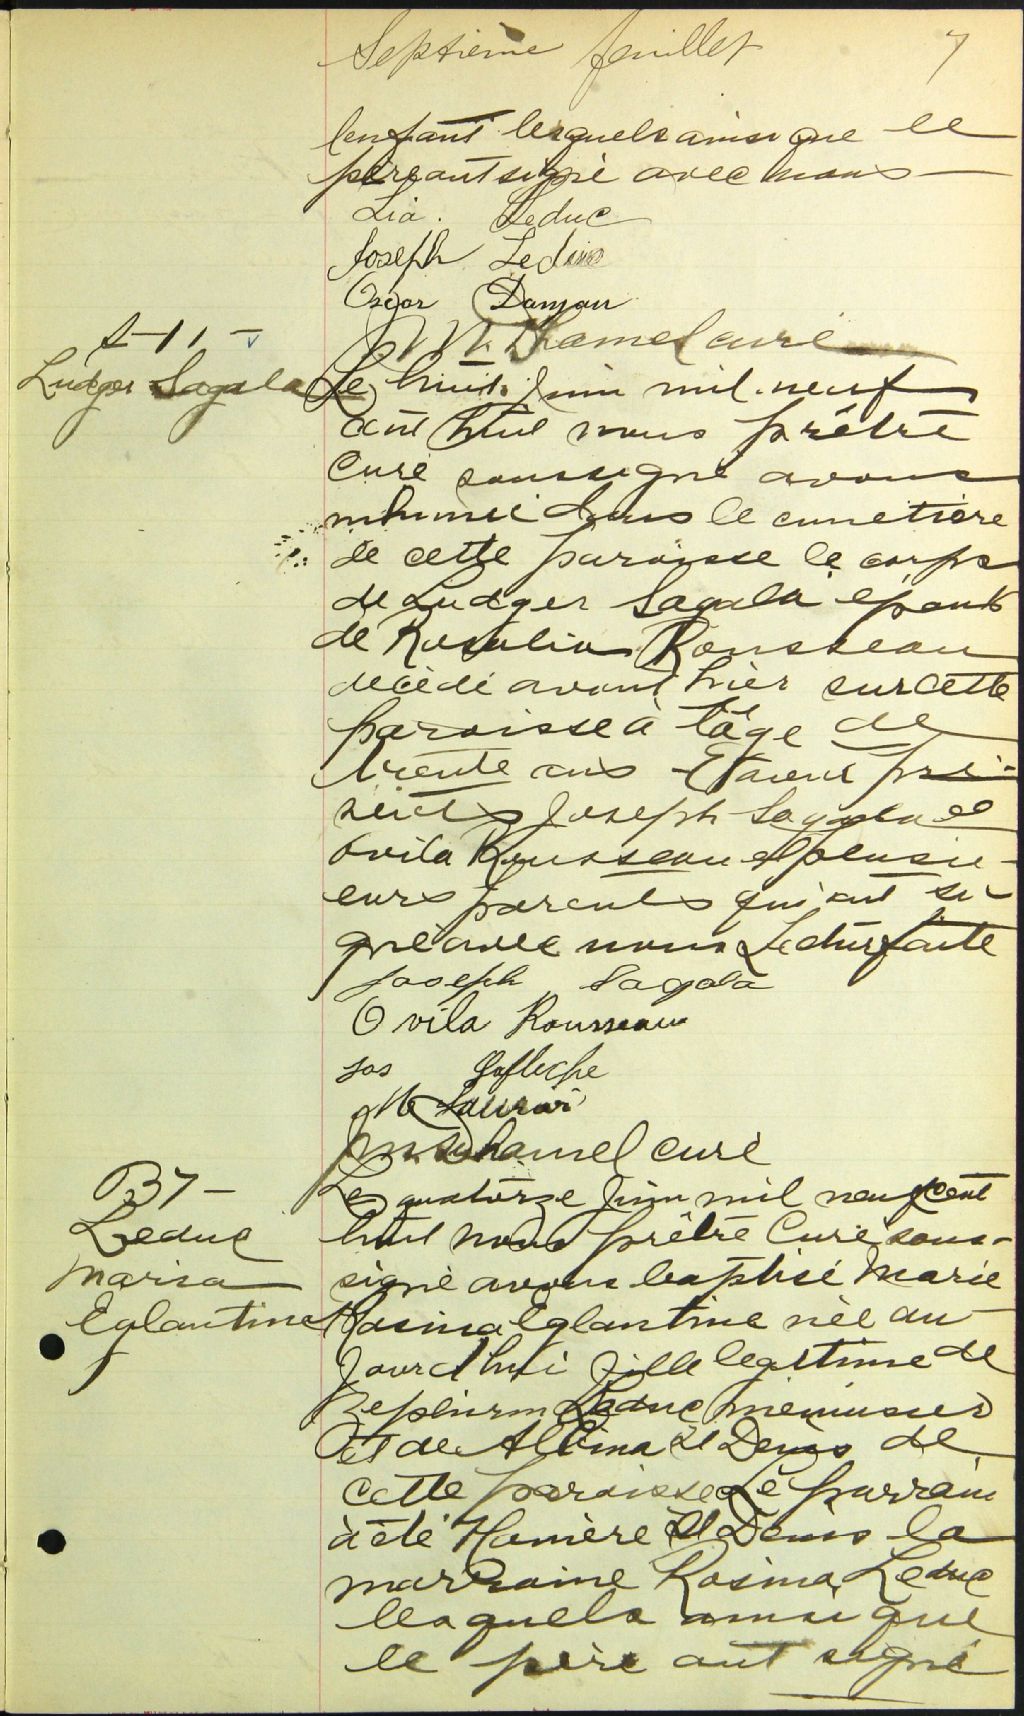 Septième feuillet 7
lenfant lesquels ainsi que le
père ont signé avec nous
Lia. Leduc
Joseph Leduc
Oscar Danjou
Duhamel curé
S-11-
Ludger Lagala
Le huit Juin mil neuf
cent huit nous prêtre
Curé soussigné avons
inhumé dans le cimetière
de cette paroisse le corps
de Ludger Lagala époux
de Rosalia Rousseau
décédé avant hier sur cette
paroisse à l'âge de
trente ans Etaient pré-
sents Joseph Lagala et
Ovila Rousseau et plusi-
eurs parents qui ont si-
gné avec nous Lecture faite
Joseph Lagala
Ovila Rousseau
Jos Lafleche
Duhamel curé
B7-
Leduc
Maria
Eglantine
Le quatorze Juin mil neuf cent
huit nous prêtre Curé sous-
signé avons baptisé Marie
Rosina Eglantine née au
jourd'hui fille legitime de
Zephirin Leduc menuisier
et de Albina St Denis de
cette paroisse Le parrain
à été St Denis la
marraine Rosina Leduc
lesquels ainsi que
le père ont signé